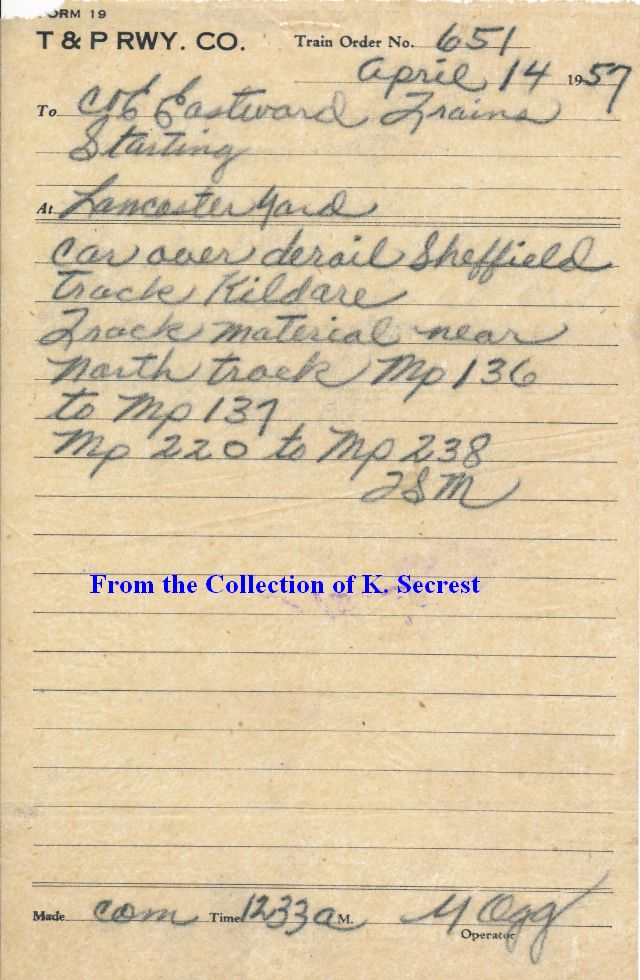 FORM 19
T & P RWY. CO. Train Order No. 651
April 14 1957
To C&E Eastward Trains
Starting
At Lancaster Yard
Car over derail Sheffield
track Kildare
Track material near
north track Mp 136
to Mp 137
Mp 220 to Mp 238
JSM
From the Collection of K. Secrest
Made com Time 1233a M. M Ogg
Operator